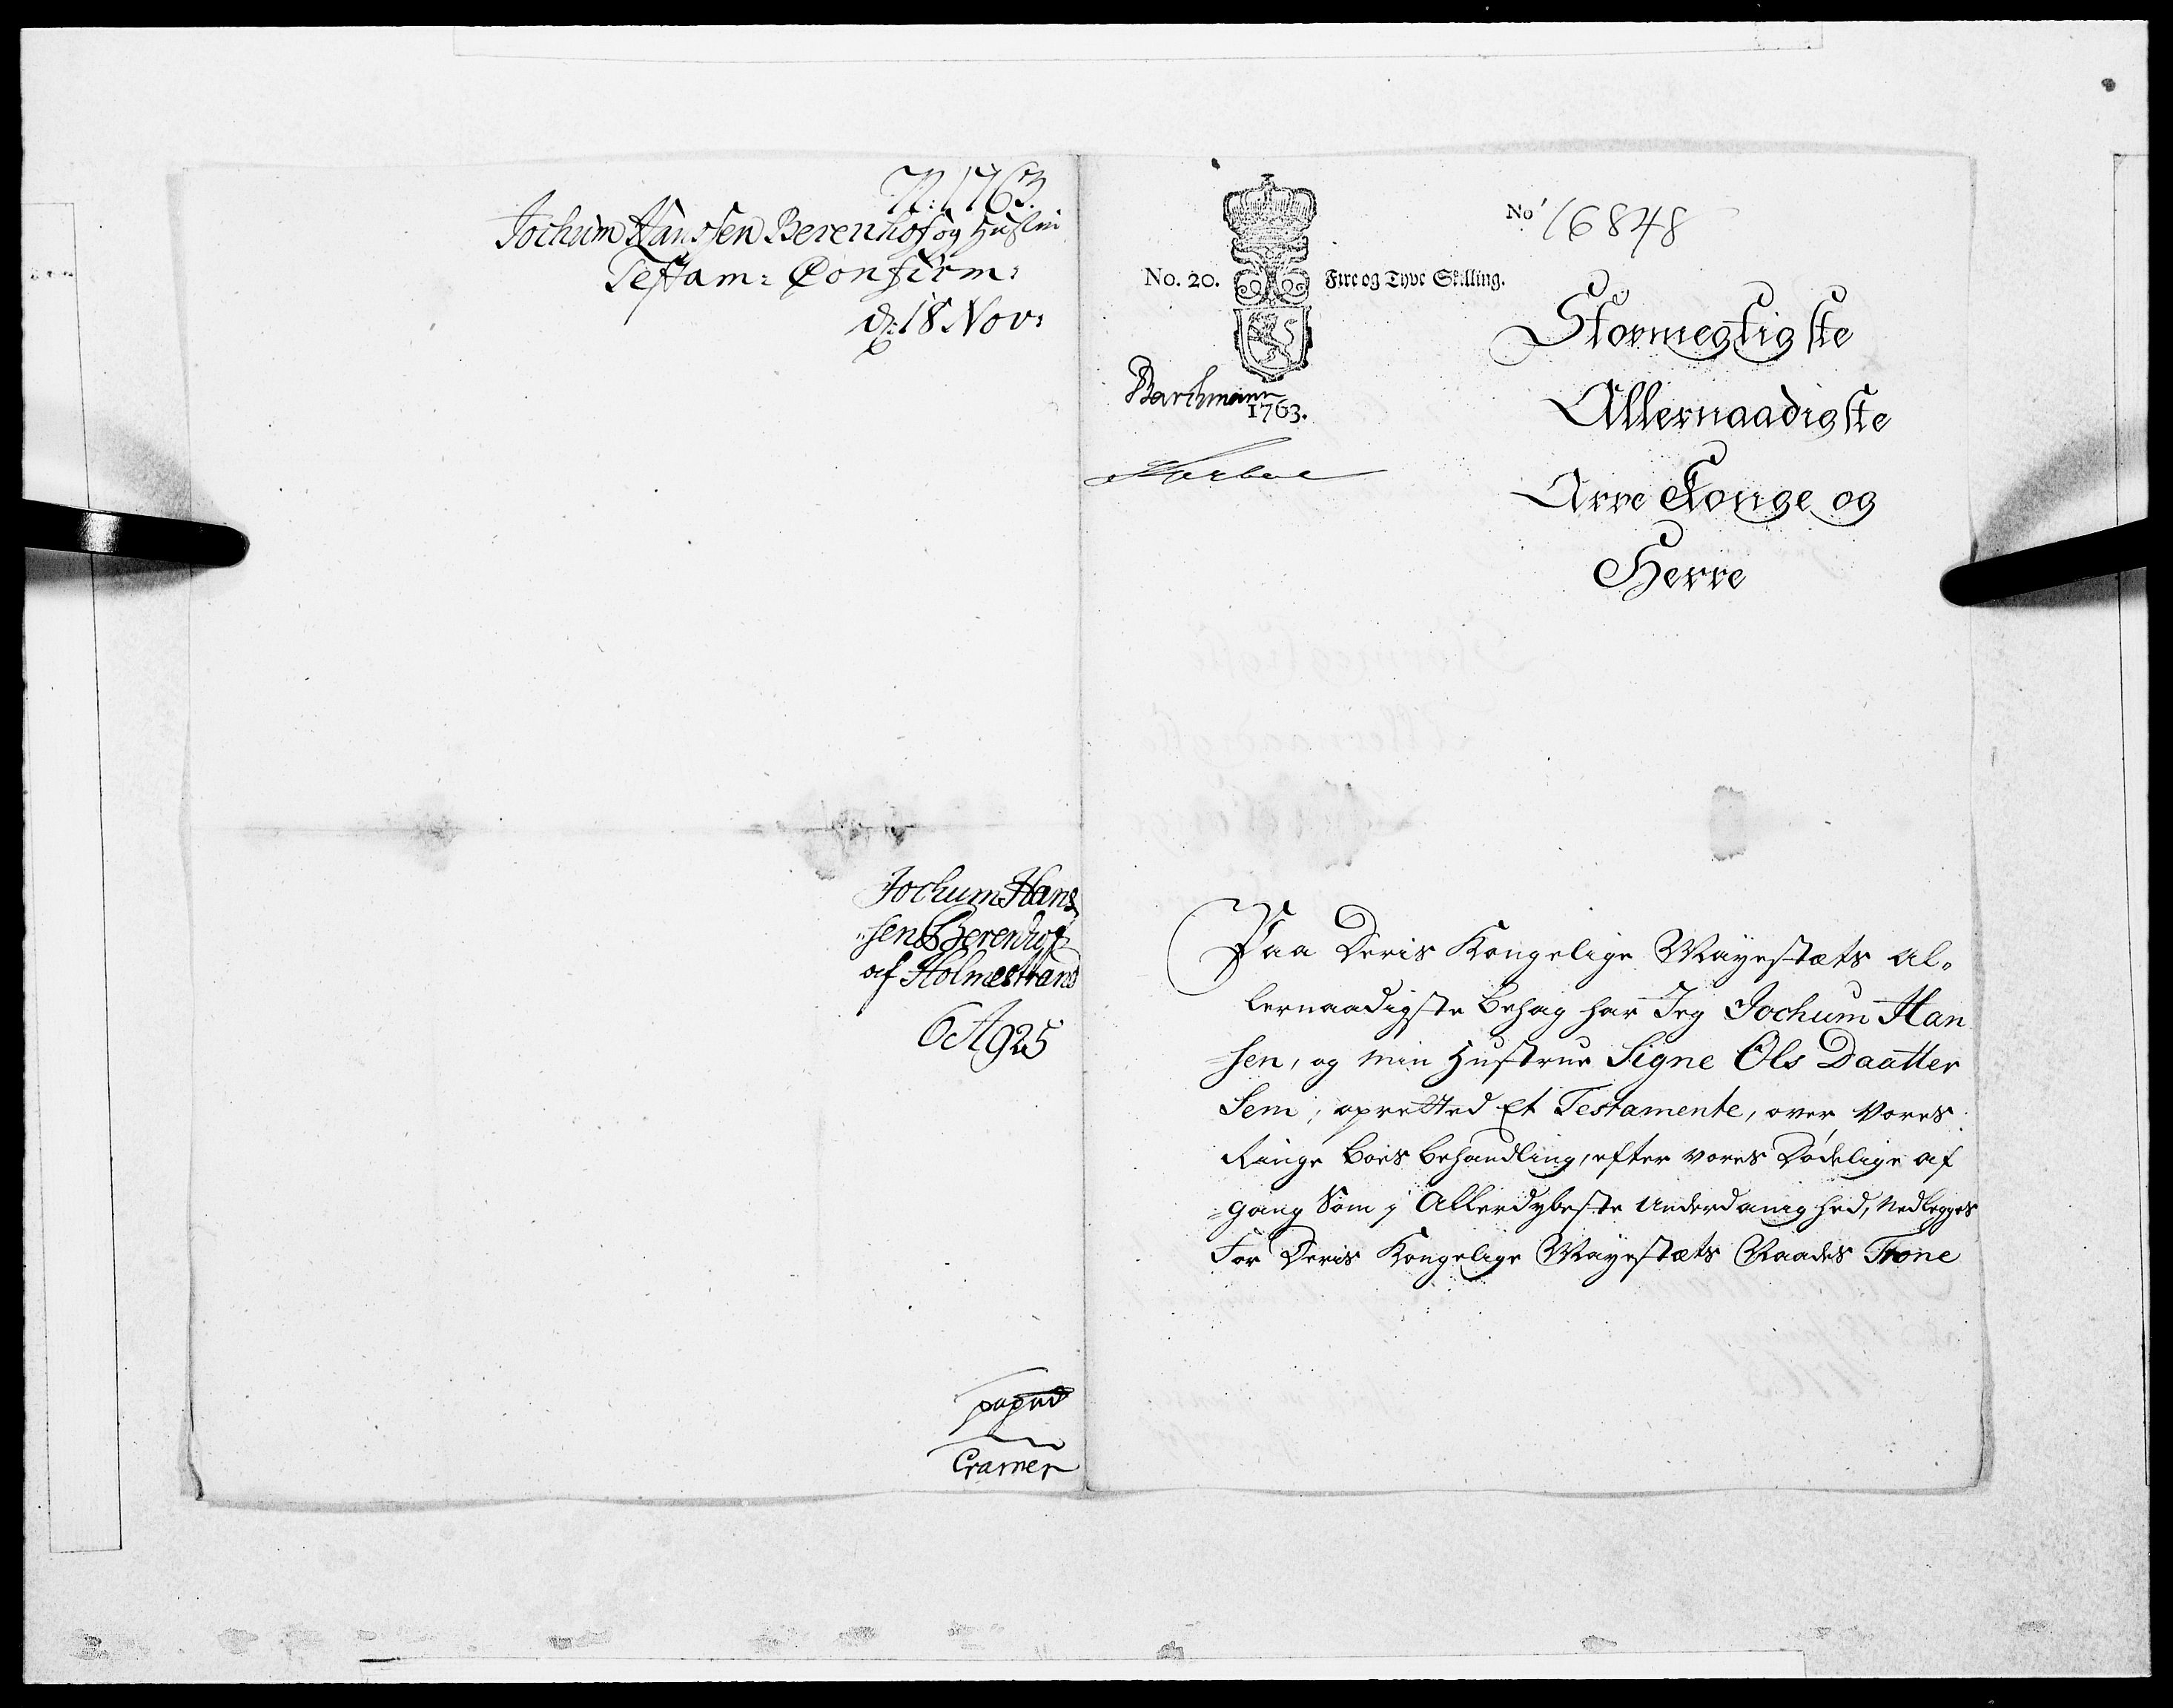 N: 1763.
Jochum Hanssen Berenhof og Hustrue
Testam: Confirm:
d: 18 Nov:
Jochum Hans
"sen Berenhof
af Holmestrand
6A925
Cramer
No. 20.
Fire og Tyve Skilling.
No 16848
Barthmann
1763.
Stormegtigste
Allernaadigste
Arve Konge og
Herre
Paa Deris Kongelige Mayestæts al-
lernaadigste Behag har Jeg Jochum Han
=sen, og min Hustrue Signe Ols Daatter
Sem, oprætted Et Testamente, over Vores
Ringe Boes Behandling, efter vores Dødelige af
=gang Som j Allerdybeste Underdanighed, Nedlegges
For Deris Kongelige Mayestæts Naades Trone